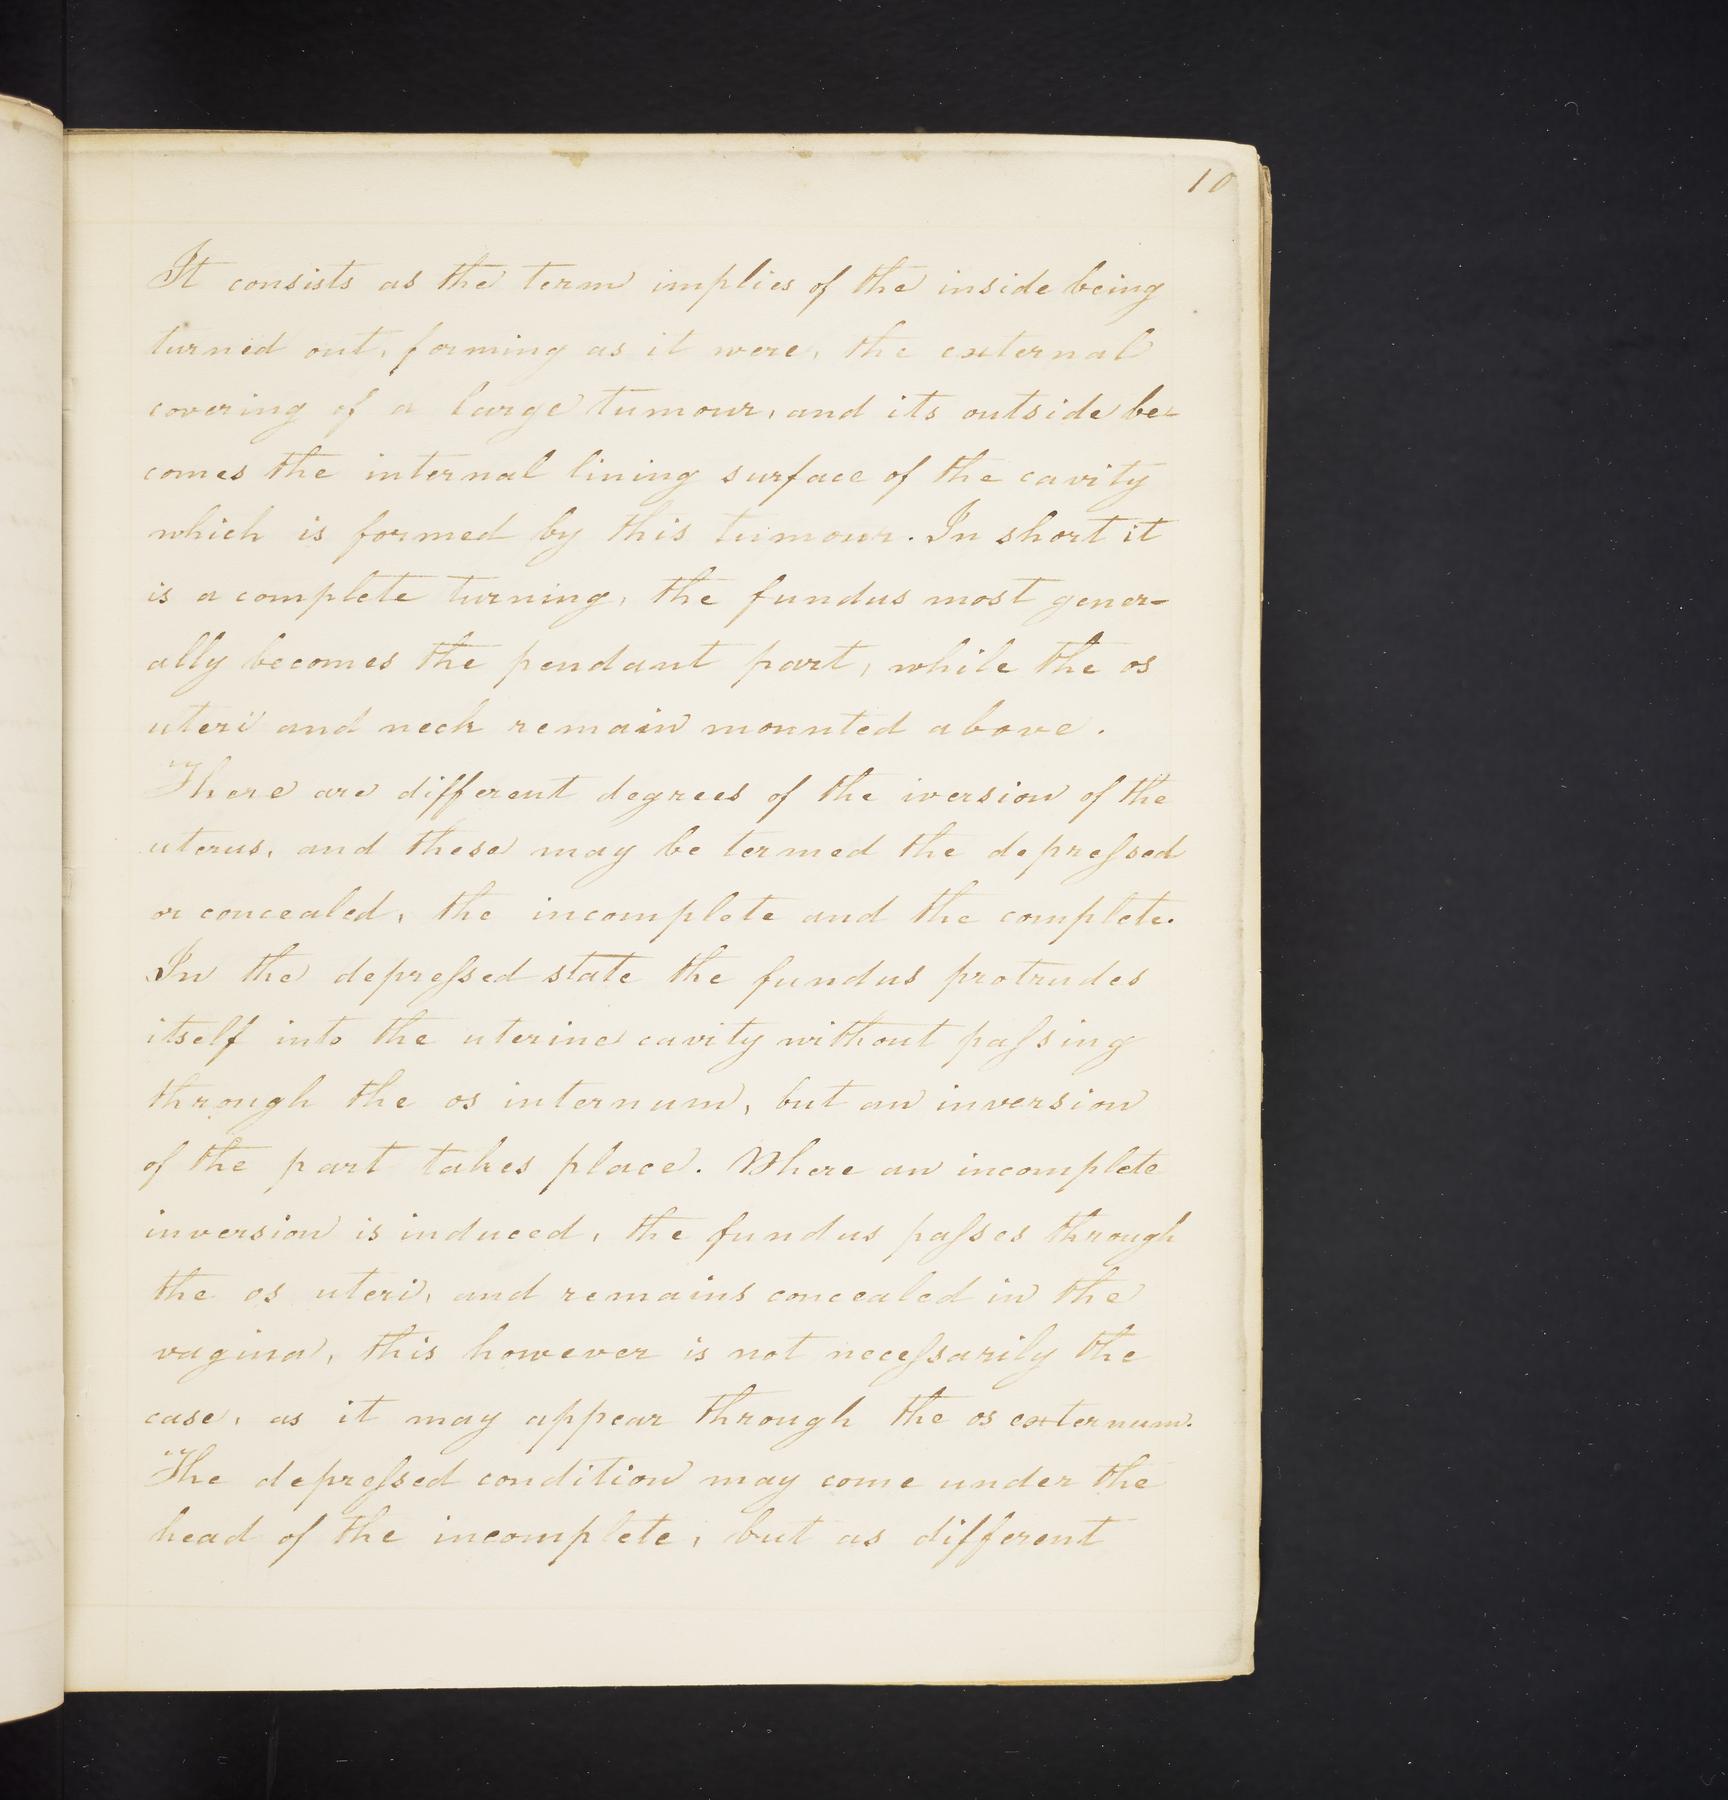 10
It consists as the term implies of the inside being
turned out, forming as it were, the external
covering of a large tumour, and its outside be-
comes the internal lining surface of the cavity
which is formed by this tumour. In short it
is a complete turning, the fundus most gener-
ally becomes the pendant part, while the os
uteri and neck remain mounted above.
There are different degrees of the iversion of the
uterus, and these may be termed the depreſsed
or concealed, the incomplete and the complete.
In the depreſsed state the fundus protrudes
itself into the uterine cavity without paſsing
through the os internum, but an inversion
of the part takes place. Where an incomplete
inversion is induced, the fundus paſses through
the os uteri, and remains concealed in the
vagina, this however is not neceſsarily the
case, as it may appear through the os externum.
The depreſsed condition may come under the
head of the incomplete, but as different